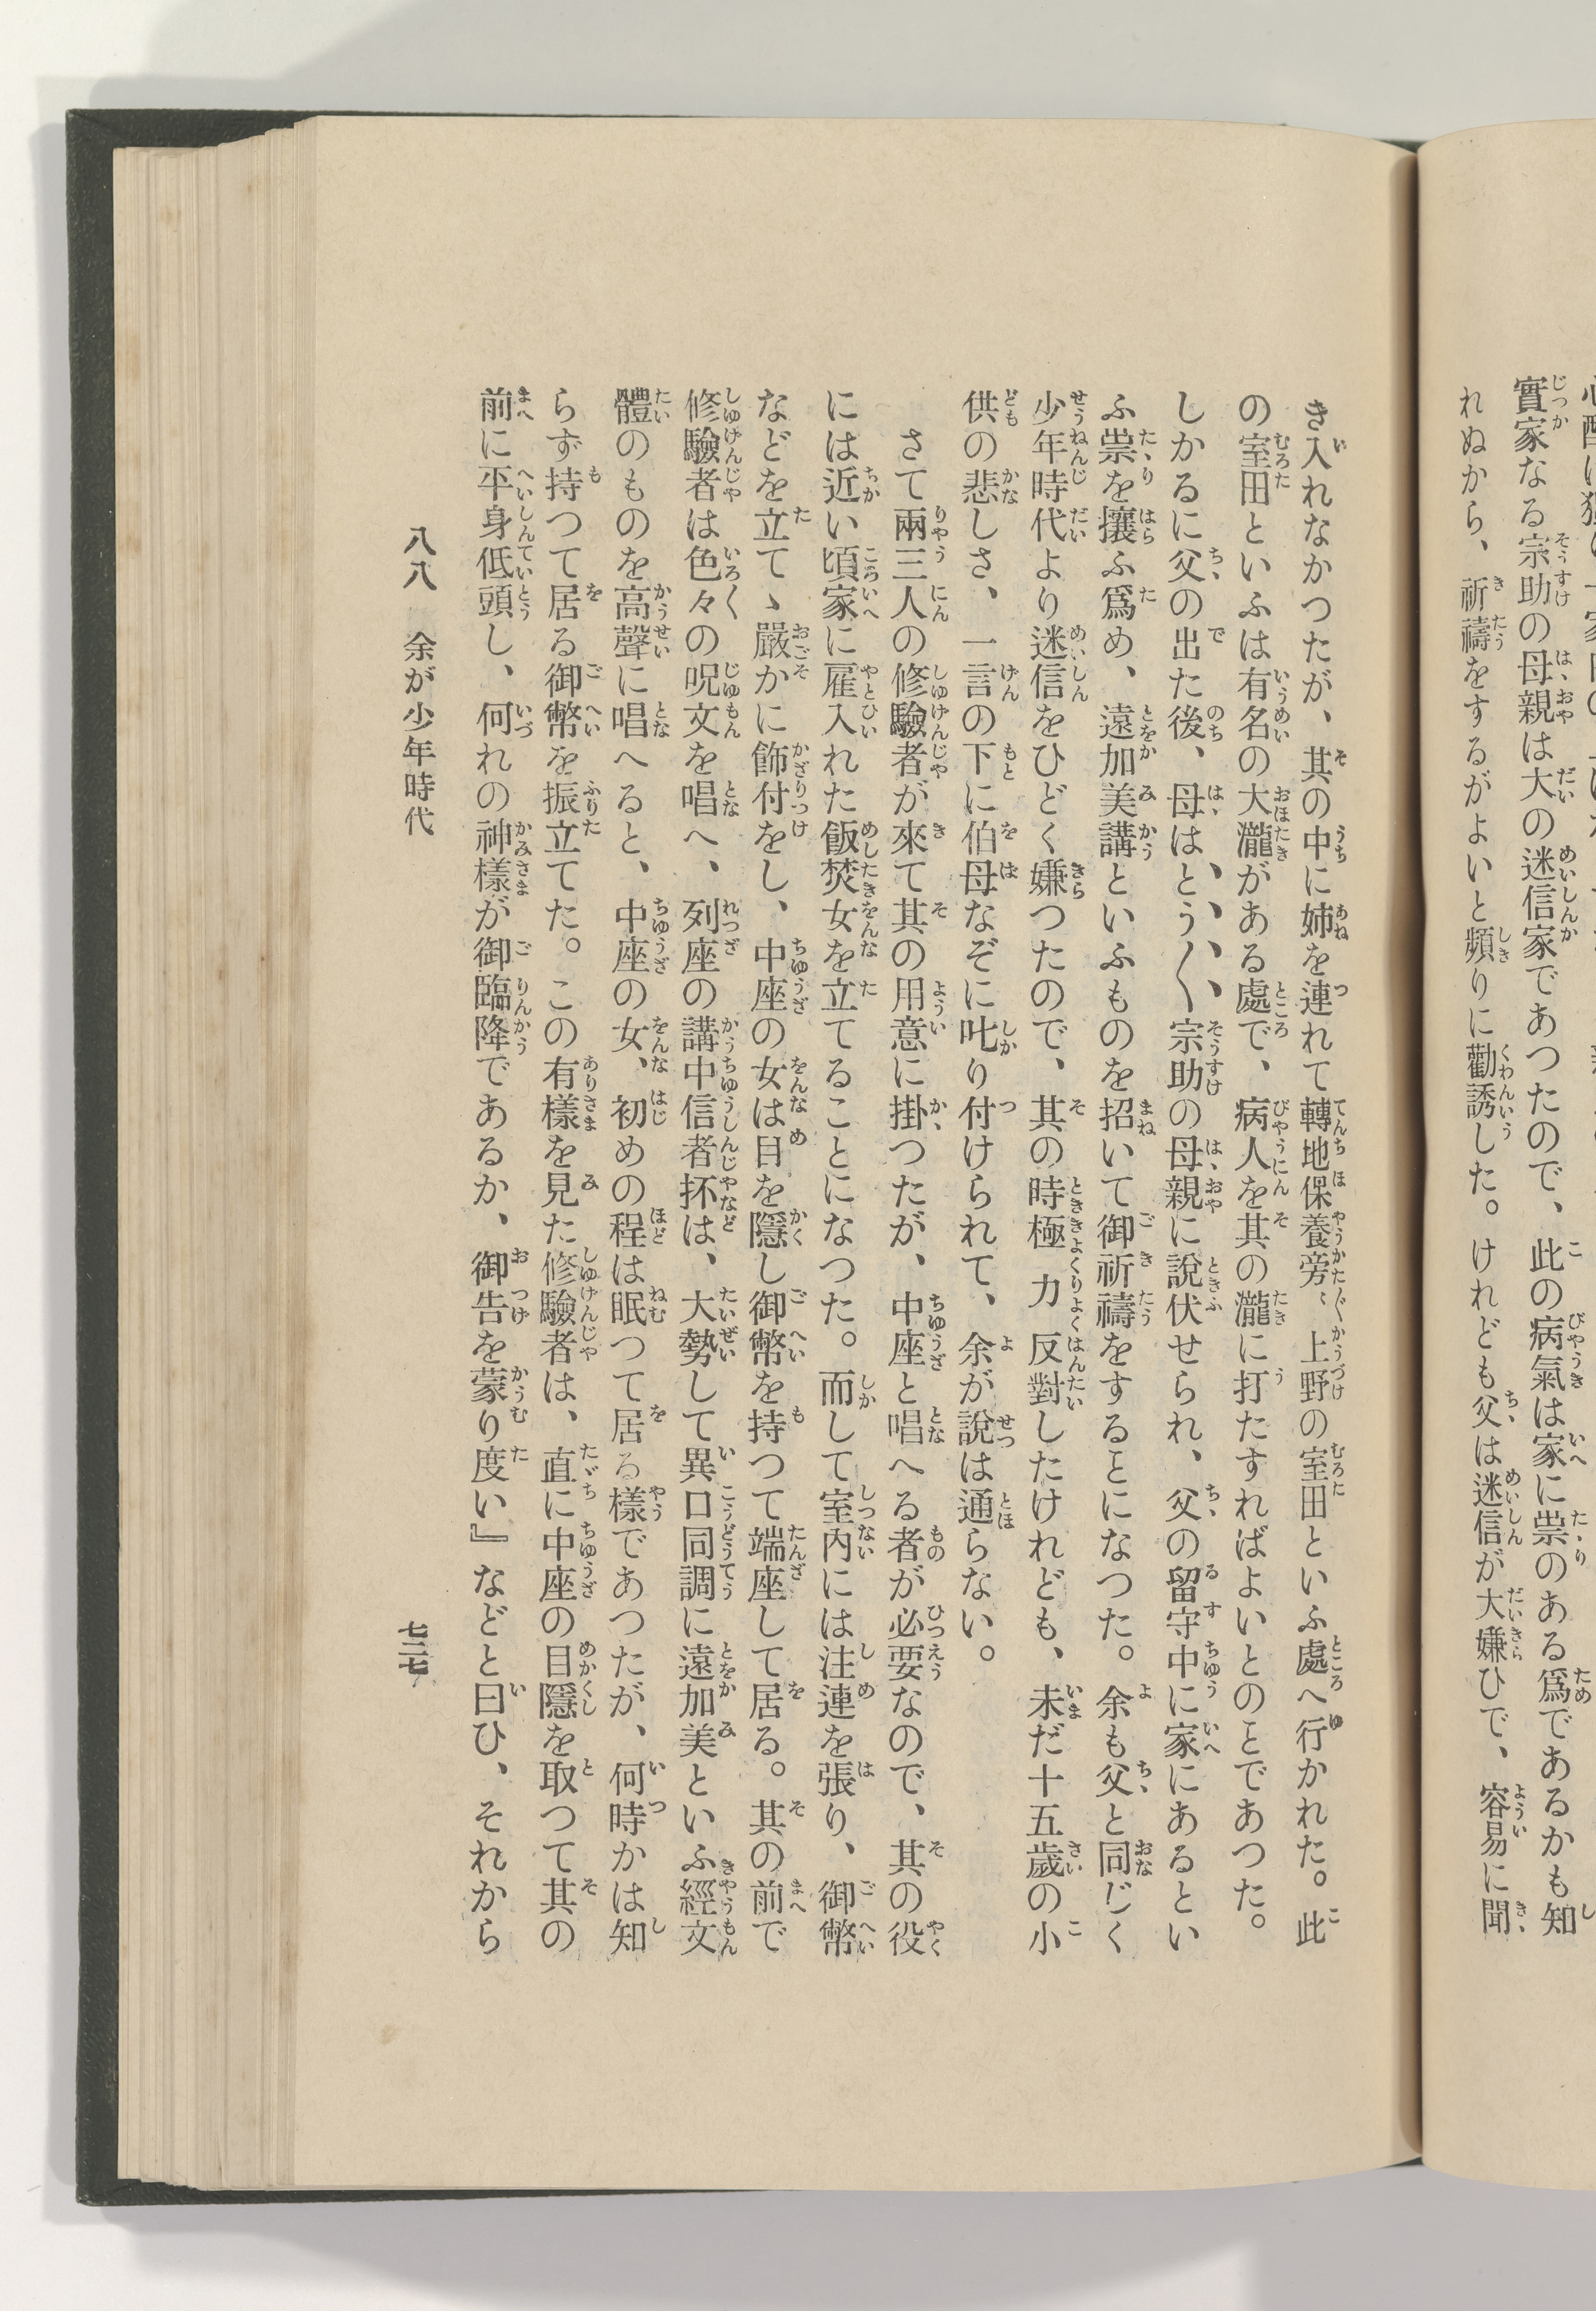 實家なる宗助の母親は大の迷信家であつたので、此の病氣は家に祟のある爲であるかも知
れぬから、祈禱をするがよいと頻りに勸誘した。けれども父は迷信が大嫌ひで、容易に聞
き入れなかつたが、其の中に姉を連れて轉地保養旁〻上野の室田といふ處へ行かれた。此
の室田といふは有名の大瀧がある處で、病人を其の瀧に打たすればよいとのことであつた。
しかるに父の出た後、母はとう〳〵宗助の母親に說伏せられ、父の留守中に家にあるとい
ふ祟を攘ふ爲め、遠加美講といふものを招いて御祈禱をすることになつた。余も父と同じく
少年時代より迷信をひどく嫌つたので、其の時極力反對したけれども、未だ十五歲の小
供の悲しさ、一言の下に伯母なぞに叱り付けられて、余が說は通らない。
さて兩三人の修驗者が來て其の用意に掛つたが、中座と唱へる者が必要なので、其の役
には近い頃家に雇入れた飯焚女を立てることになつた。而して室內には注連を張り、御幣
などを立てゝ嚴かに飾付をし、中座の女は目を隱し御幣を持つて端座して居る。其の前で
修驗者は色々の呪文を唱へ、列座の講中信者抔は、大勢して異口同調に遠加美といふ經文
體のものを高聲に唱へると、中座の女、初めの程は眠つて居る樣であつたが、何時かは知
らず持つて居る御幣を振立てた。この有樣を見た修驗者は、直に中座の目隱を取つて其の
前に平身低頭し、何れの神樣が御臨降であるか、御告を蒙り度い』などと曰ひ、それから
八八 余が少年時代
七二七